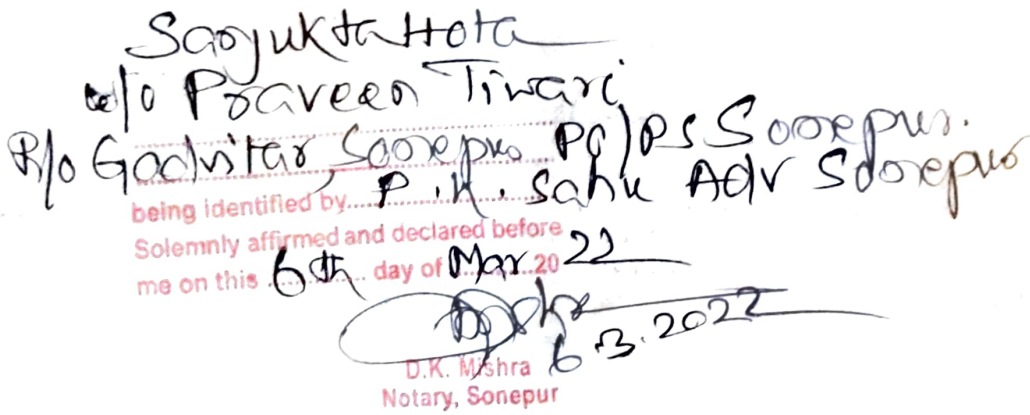 Sanjukta Hota
w/o Praveen Tiwari
R/o Gadvitar, Sonepur PO/PS Sonepur.
being identified by P.K. Sahu Adv Sonepur
Solemnly affirmed and declared before
me on this 6th day of Mar 2022
6.3.2022
D.K. Mishra
Notary, Sonepur